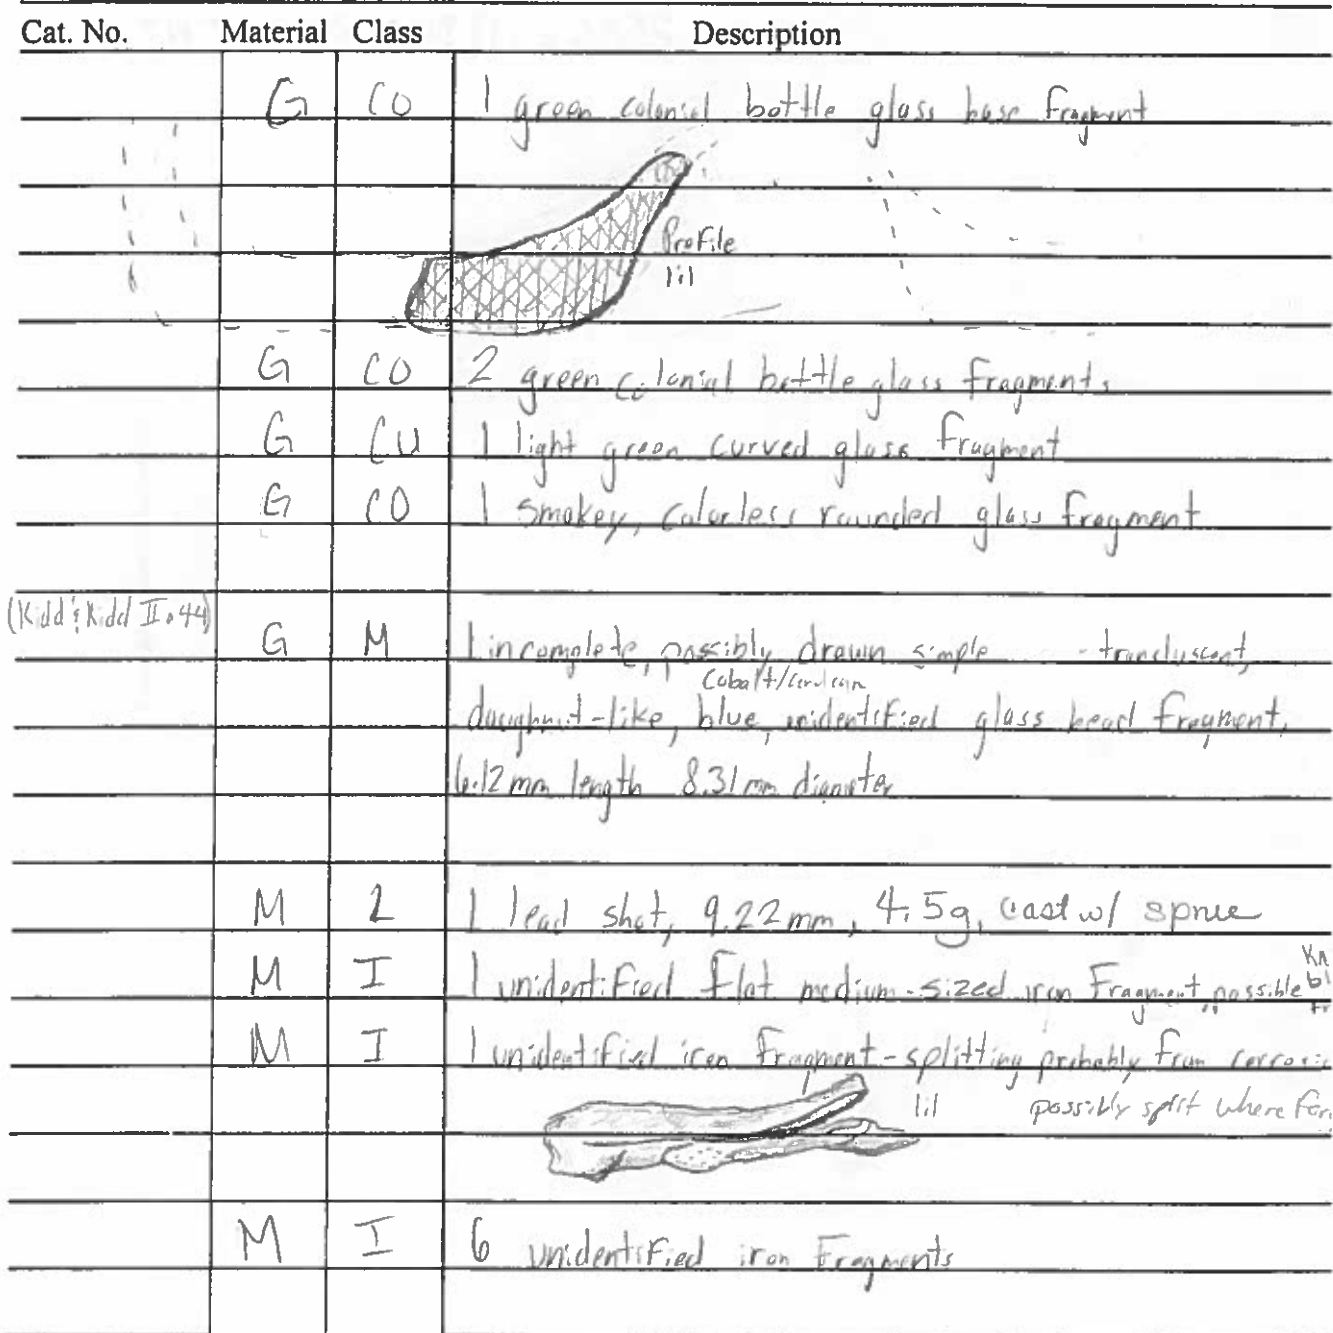 Cat. No. Material Class Description
G CO 1 green colonial bottle glass base fragment
Profile
1:1
G CO 2 green colonial bottle glass fragments
G CU 1 light green curved glass fragment
G CO 1 smokey, colorless rounded glass fragment
(Kidd & Kidd II a 44)
G M 1 incomplete, possibly drawn simple - transluscent,
Cobalt/
doughnut-like, blue, unidentified glass bead fragment,
6.12 mm length 8.31 mm diameter
M L 1 lead shot, 9.22 mm, 4.5g, cast w/ sprue
M I 1 unidentified flat medium-sized iron fragment, possible
M I 1 unidentified iron fragment - splitting probably from
1:1 possibly split where
M I 6 unidentified iron fragments